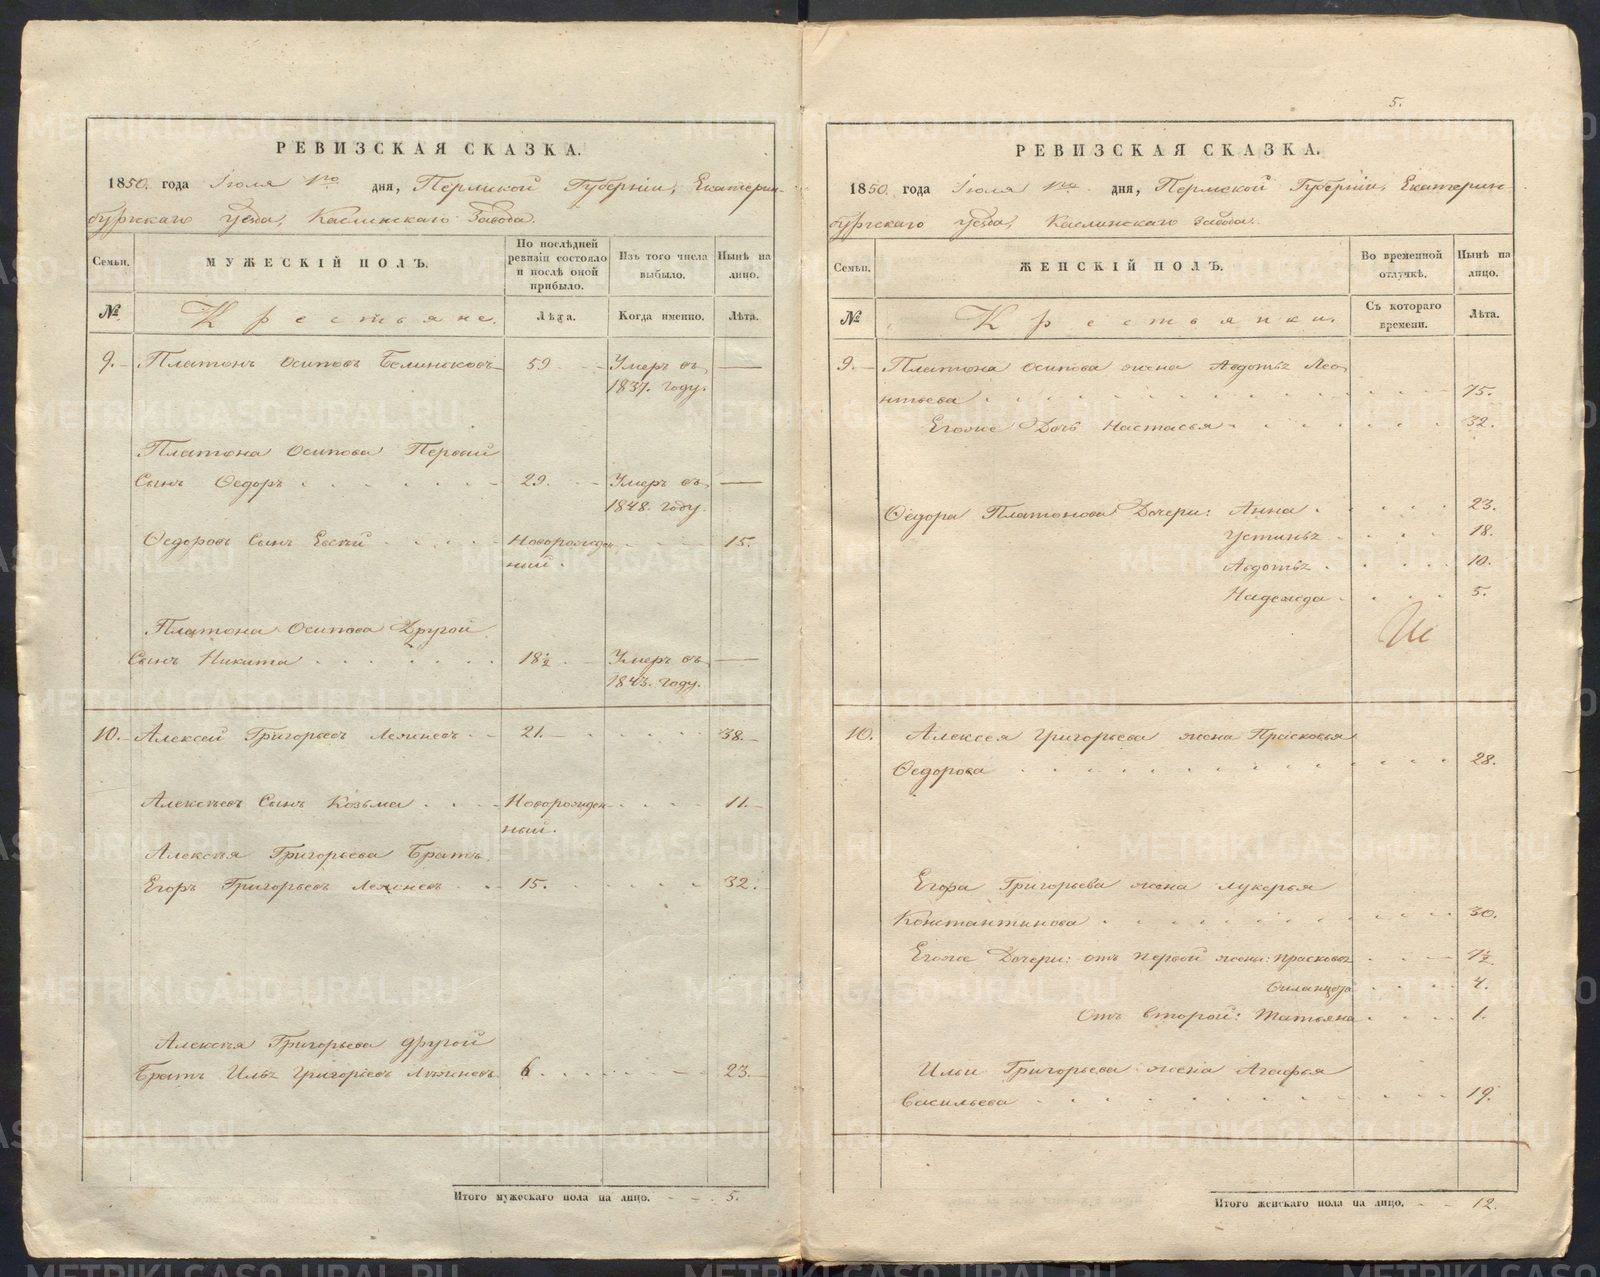 РЕВИЗСКАЯ СКАЗКА.
1850. года Іюля 1го дня, Пермской Губерніи, Екатерин-
бургскаго Уезда, Каслинскаго Завода.
Семьи.
МУЖЕСКІЙ ПОЛЪ.
По послѣдней ревизіи состояло и послѣ оной прибыло.
Изъ того числа выбыло.
Нынѣ на лицо.
№
Крестьяне.
Лѣта.
Когда именно.
Лѣта.
9. Платонъ Осиповъ 59 Умеръ въ
1837. году.
Платона Осипова Первый
Сынъ Ѳедоръ 29. Умеръ въ
1848. году.
Ѳедоровъ Сынъ Новорожден- 15.
ный.
Платона Осипова Другой
Сынъ Никита 18½ Умеръ въ
1843. году.
10. Алексей Григорьевъ 21. 38.
Алексѣевъ Сынъ Козьма Новорожден- 11.
ный.
Алексѣя Григорьева Братъ
Егоръ Григорьевъ 15. 32.
Алексѣя Григорьева другой
Братъ Илья Григорьевъ 6. 23.
Итого мужескаго пола на лицо. 5.
5.
РЕВИЗСКАЯ СКАЗКА.
1850. года Іюля 1го дня, Пермской Губерніи, Екатерин-
бургскаго Уезда, Каслинскаго Завода.
Семьи.
ЖЕНСКІЙ ПОЛЪ.
Во временной отлучкѣ.
Нынѣ на лицо.
№
Крестьянки.
Съ котораго времени.
Лѣта.
9. Платона Осипова жена Авдотья Лео-
нтьева 75.
Егоже Дочь Настасья 32.
Ѳедора Платонова Дочери: Анна 23.
Устинья 18.
Авдотья 10.
Надежда 5.
10. Алексея Григорьева жена Прасковья
Ѳедорова 28.
Егора Григорьева жена Лукерья
Константинова 30.
Егоже Дочери: отъ первой жены: Прасковья 7½
4.
Отъ второй: Татьяна 1.
Ильи Григорьева жена Агафья
Васильева 19.
Итого женскаго пола на лицо. 12.
METRIKI.GASO-URAL.RU